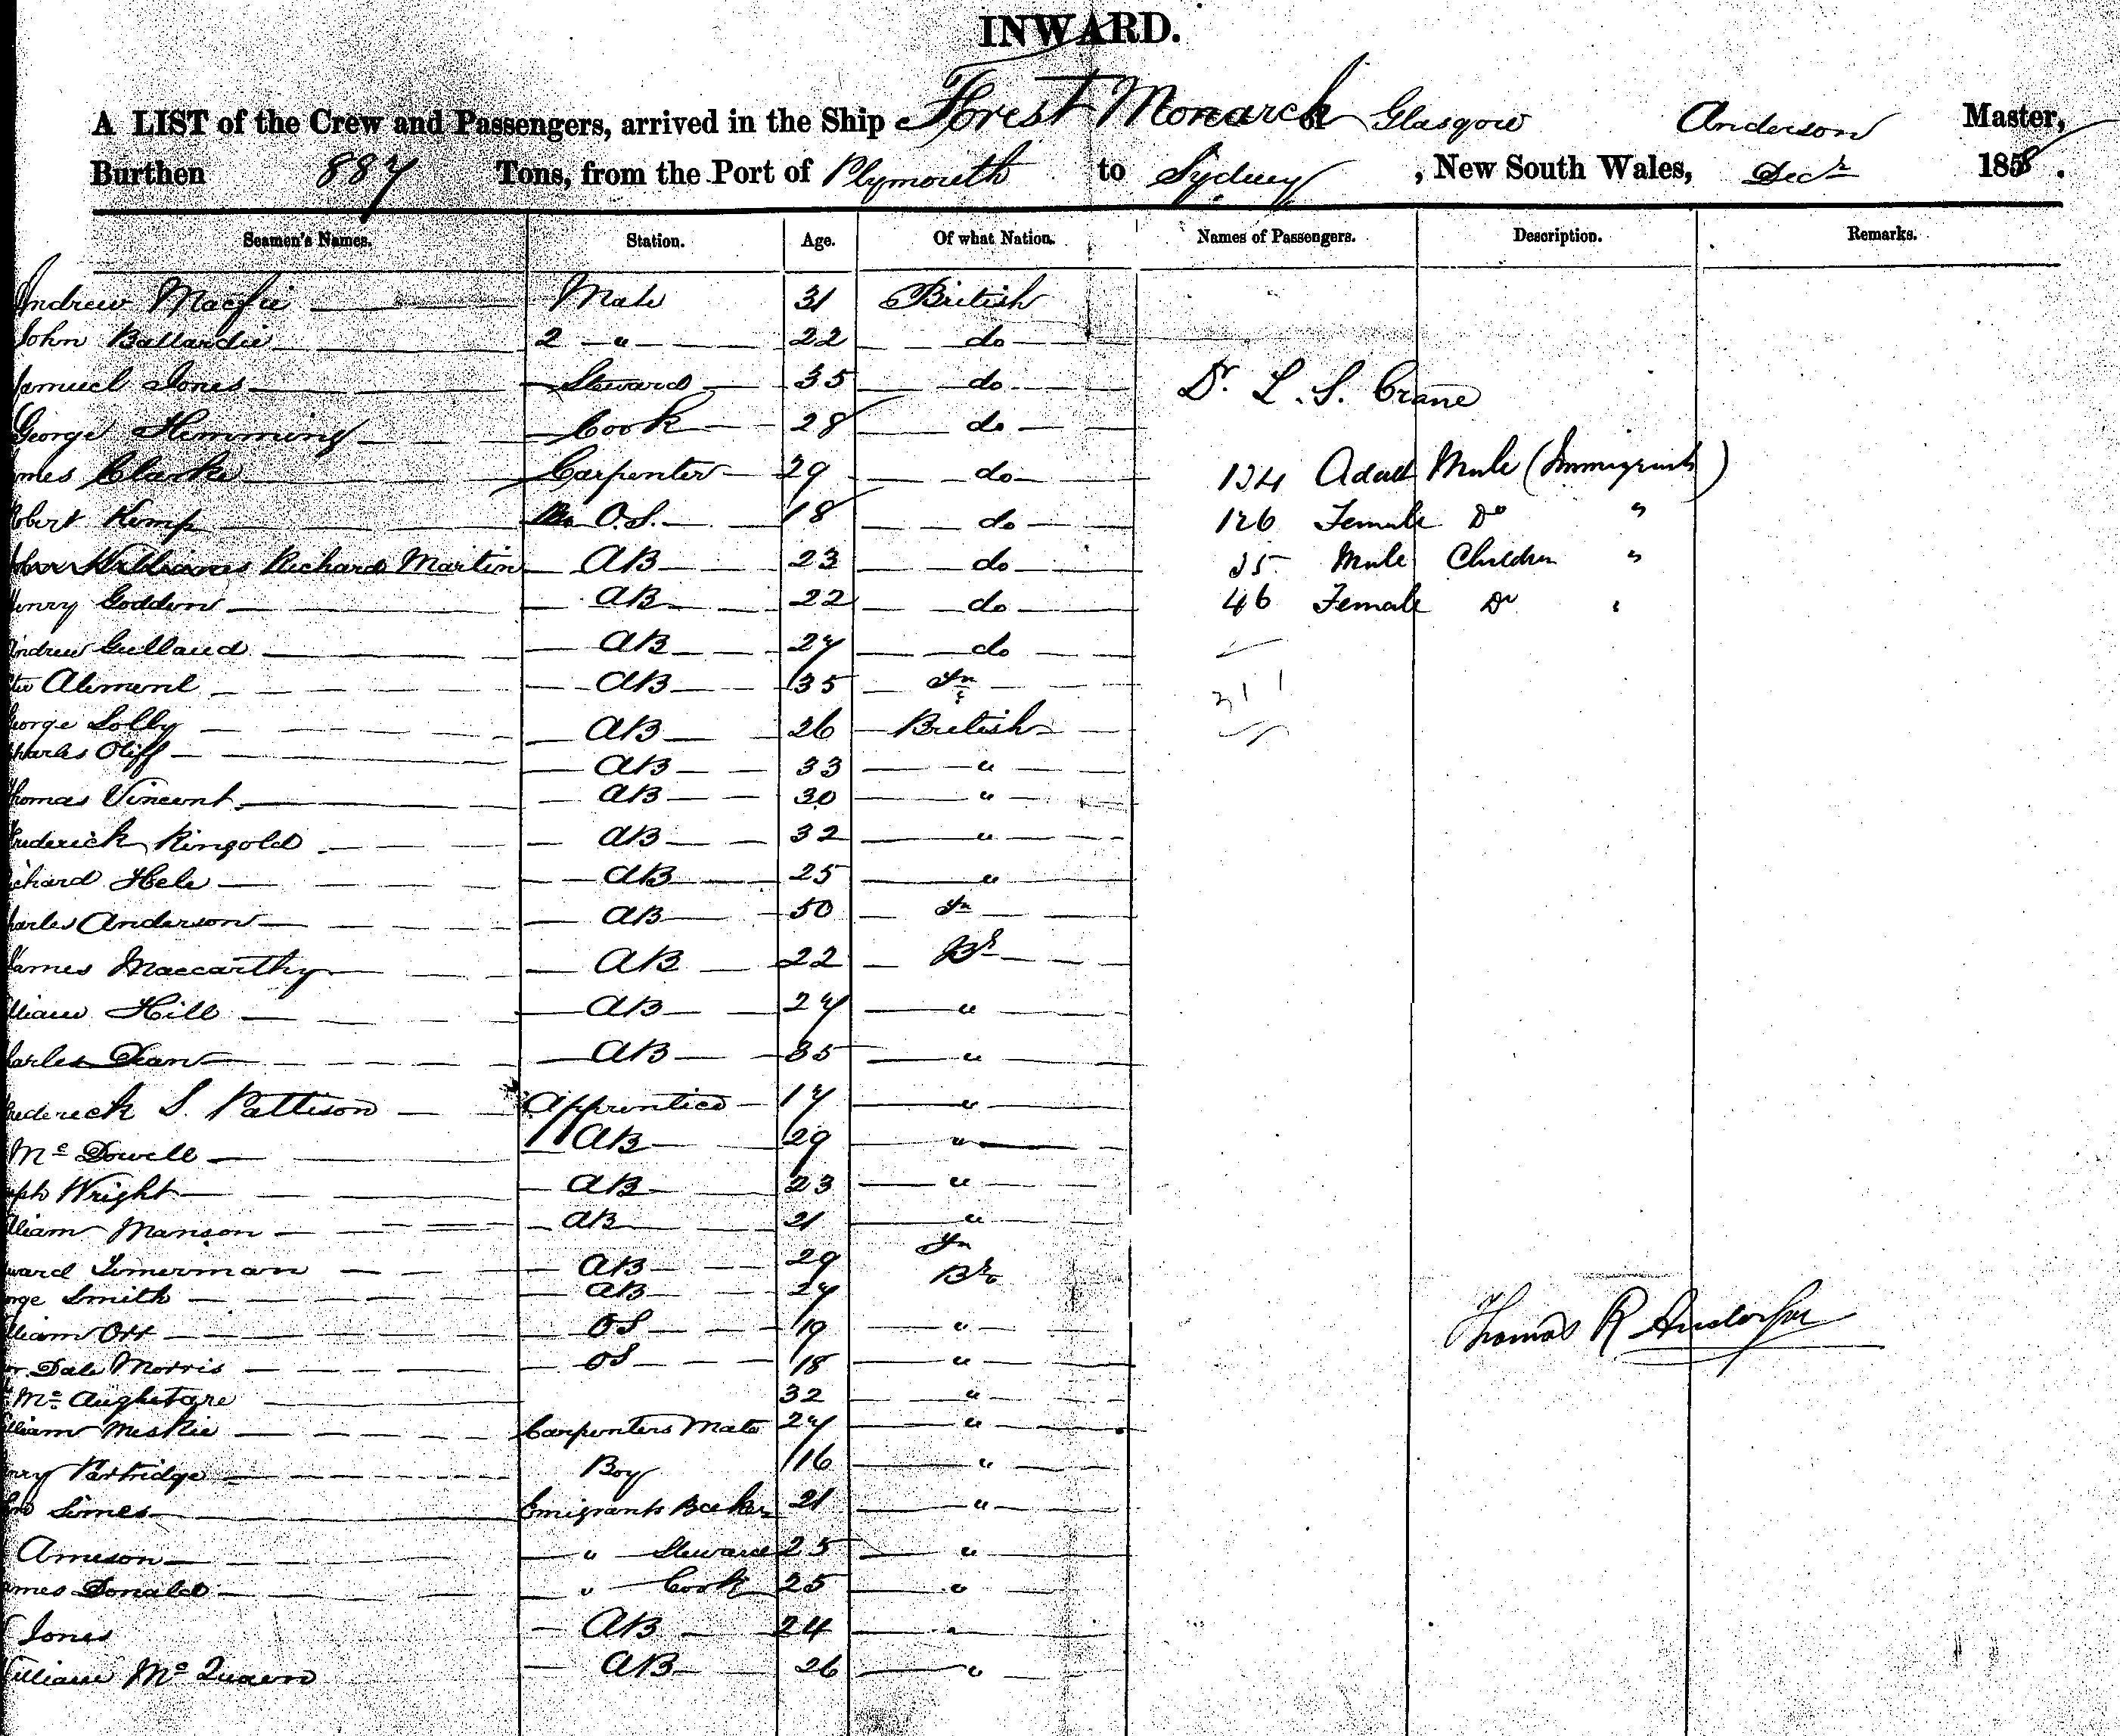 INWARD.
A LIST of the Crew and Passengers, arrived in the Ship Forest Monarch of Glasgow Anderson Master,
Burthen 887 Tons, from the Port of Plymouth to Sydney, New South Wales, Decr 1858.
Seamen's Names. Station. Age. Of what Nation. Names of Passengers. Description. Remarks.
Andrew Macfie Mate 31 British
John Ballardie 2 " 22 do
Samuel Jones Steward 35 do Dr. L. S. Crane
George Hemming Cook 28 do
mes Clarke Carpenter 29 do 134 Adult Male (Immigrants)
Robert Kemp O.S. 18 do 126 Female Do "
Richard Martin AB 23 do Male Children "
Henry Goddon AB 22 do 46 Female Do "
Andrew Gulland AB 27 do
AB 35 Fn 311
George Solly AB 26 British
Charles Oliff AB 33 "
Thomas Vincent AB 30 "
Frederick Ringold AB 32 "
ichard Hele AB 25 "
harles Anderson AB 50 Fn
James Maccarthy AB 22 Br
lliam Hill AB 27 "
harles Dean AB 35 "
rederick S. Pattison Apprentice 17 "
Mc Dowell AB 29 "
eph Wright AB 23 "
lliam Manson AB 21 "
ward Timerman AB 29 Fn
rge Smith AB 27 Br
lliam Orr OS 19 " Thomas R Anderson
Dale Morris OS 18 "
32 "
lliam Meskie Carpenters Mate 27 "
nry Partridge Boy 16 "
Simes Emigrants Baker 21 "
Ameson " Steward 25 "
ames Donald " Cook 25 "
Jones AB 24 "
William Mc Queen AB 26 "